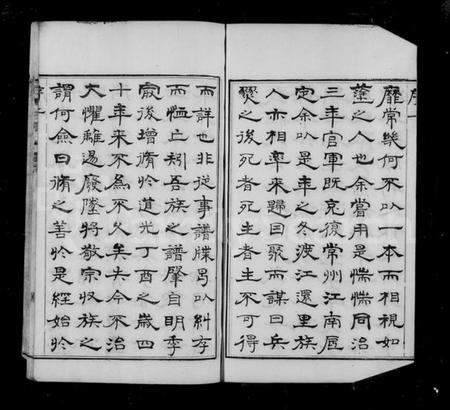 靡常幾何不以一本而相視如
塗之人也余嘗用是惴惴同治
三年官軍既克復常州江南底
定余以是年之冬渡江還里族
人亦相率來歸因聚而謀曰兵
燹之後死者死生者生不可得
而詳也非從事譜牒曷以糾存
而恤亡剏吾族之譜肇自明季
厥後增脩於道光丁酉之歲四
十年來不為不久矣夫今不治
大懼離逷廢墜將敬宗收族之
謂何僉曰脩之善於是經始於